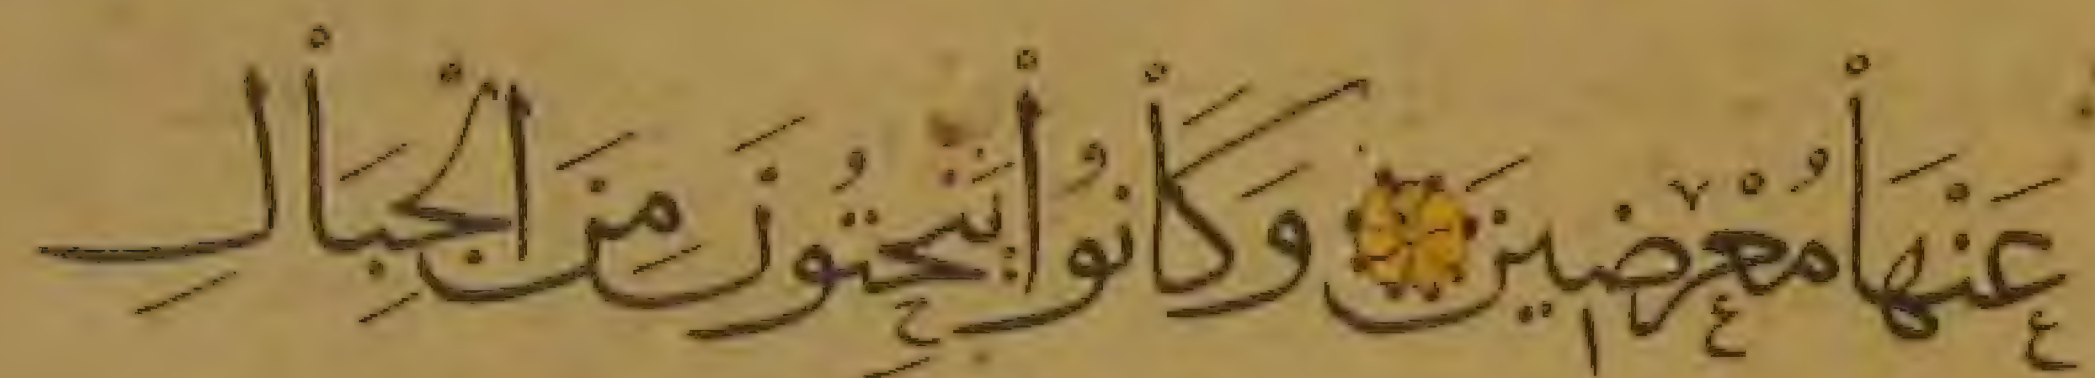 عَنْهَا مُعْرِضِينَ ۝ وَكَانُوا يَنْحِتُونَ مِنَ الْجِبَالِ